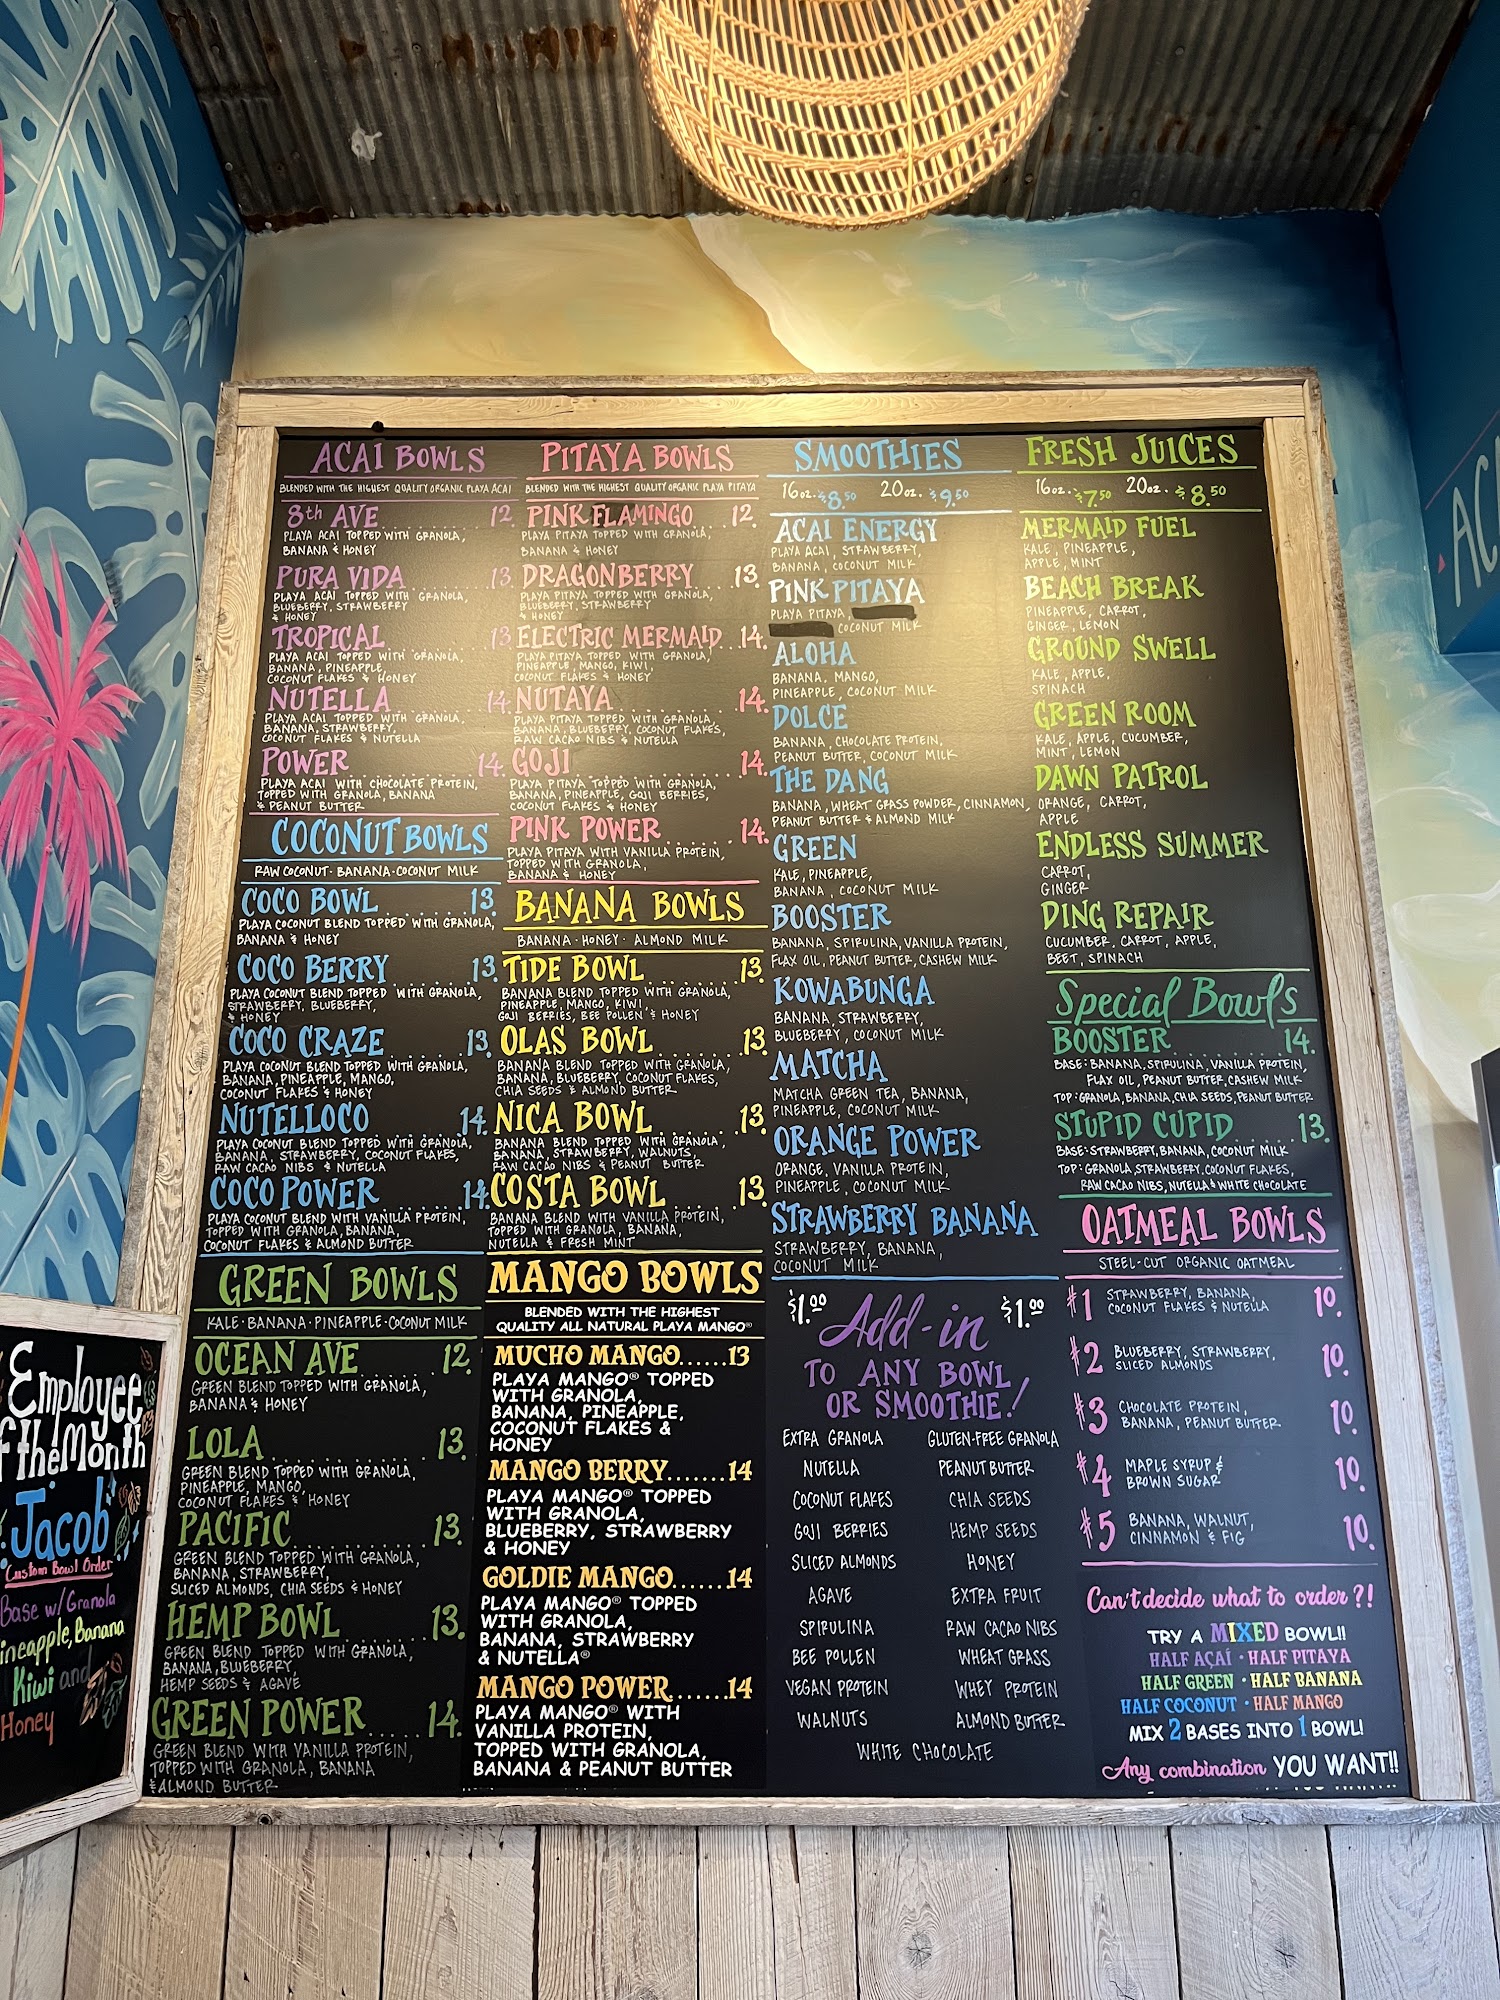 ACAI BOWLS
BLENDED WITH THE HIGHEST QUALITY ORGANIC PLAYA ACAI
8th AVE 12.
PLAYA ACAI TOPPED WITH GRANOLA,
BANANA & HONEY
PURA VIDA 13.
PLAYA ACAI TOPPED WITH GRANOLA,
BLUEBERRY, STRAWBERRY
& HONEY
TROPICAL 13
PLAYA ACAI TOPPED WITH GRANOLA,
BANANA, PINEAPPLE,
COCONUT FLAKES & HONEY
NUTELLA 14.
PLAYA ACAI TOPPED WITH GRANOLA,
BANANA, STRAWBERRY,
COCONUT FLAKES & NUTELLA
POWER 14.
PLAYA ACAI WITH CHOCOLATE PROTEIN,
TOPPED WITH GRANOLA, BANANA
& PEANUT BUTTER
COCONUT BOWLS
RAW COCONUT · BANANA · COCONUT MILK
COCO BOWL 13.
PLAYA COCONUT BLEND TOPPED WITH GRANOLA,
BANANA & HONEY
COCO BERRY 13.
PLAYA COCONUT BLEND TOPPED WITH GRANOLA,
STRAWBERRY, BLUEBERRY,
& HONEY
COCO CRAZE 13.
PLAYA COCONUT BLEND TOPPED WITH GRANOLA,
BANANA, PINEAPPLE, MANGO,
COCONUT FLAKES & HONEY
NUTELLOCO 14.
PLAYA COCONUT BLEND TOPPED WITH GRANOLA,
BANANA, STRAWBERRY, COCONUT FLAKES,
RAW CACAO NIBS & NUTELLA
COCO POWER 14.
PLAYA COCONUT BLEND WITH VANILLA PROTEIN,
TOPPED WITH GRANOLA, BANANA,
COCONUT FLAKES & ALMOND BUTTER
GREEN BOWLS
KALE · BANANA · PINEAPPLE · COCONUT MILK
OCEAN AVE 12.
GREEN BLEND TOPPED WITH GRANOLA,
BANANA & HONEY
LOLA 13.
GREEN BLEND TOPPED WITH GRANOLA,
PINEAPPLE, MANGO,
COCONUT FLAKES & HONEY
PACIFIC 13.
GREEN BLEND TOPPED WITH GRANOLA,
BANANA, STRAWBERRY,
SLICED ALMONDS, CHIA SEEDS & HONEY
HEMP BOWL 13.
GREEN BLEND TOPPED WITH GRANOLA,
BANANA, BLUEBERRY,
HEMP SEEDS & AGAVE
GREEN POWER.... 14.
GREEN BLEND WITH VANILLA PROTEIN,
TOPPED WITH GRANOLA, BANANA
& ALMOND BUTTER
PITAYA BOWLS
BLENDED WITH THE HIGHEST QUALITY ORGANIC PLAYA PITAYA
PINK FLAMINGO 12.
PLAYA PITAYA TOPPED WITH GRANOLA,
BANANA & HONEY
DRAGONBERRY 13.
PLAYA PITAYA TOPPED WITH GRANOLA,
BLUEBERRY, STRAWBERRY
& HONEY
ELECTRIC MERMAID 14.
PLAYA PITAYA TOPPED WITH GRANOLA,
PINEAPPLE, MANGO, KIWI,
COCONUT FLAKES & HONEY
NUTAYA 14.
PLAYA PITAYA TOPPED WITH GRANOLA,
BANANA, BLUEBERRY, COCONUT FLAKES,
RAW CACAO NIBS & NUTELLA
GOJI 14.
PLAYA PITAYA TOPPED WITH GRANOLA,
BANANA, PINEAPPLE, GOJI BERRIES,
COCONUT FLAKES & HONEY
PINK POWER 14.
PLAYA PITAYA WITH VANILLA PROTEIN,
TOPPED WITH GRANOLA,
BANANA & HONEY
BANANA BOWLS
BANANA · HONEY · ALMOND MILK
TIDE BOWL 13.
BANANA BLEND TOPPED WITH GRANOLA,
PINEAPPLE, MANGO, KIWI,
GOJI BERRIES, BEE POLLEN & HONEY
OLAS BOWL 13.
BANANA BLEND TOPPED WITH GRANOLA,
BANANA, BLUEBERRY, COCONUT FLAKES,
CHIA SEEDS & ALMOND BUTTER
NICA BOWL 13.
BANANA BLEND TOPPED WITH GRANOLA,
BANANA, STRAWBERRY, WALNUTS,
RAW CACAO NIBS & PEANUT BUTTER
COSTA BOWL 13.
BANANA BLEND WITH VANILLA PROTEIN,
TOPPED WITH GRANOLA, BANANA,
NUTELLA & FRESH MINT
MANGO BOWLS
BLENDED WITH THE HIGHEST
QUALITY ALL NATURAL PLAYA MANGO®
MUCHO MANGO......13
PLAYA MANGO® TOPPED
WITH GRANOLA,
BANANA, PINEAPPLE,
COCONUT FLAKES &
HONEY
MANGO BERRY.......14
PLAYA MANGO® TOPPED
WITH GRANOLA,
BLUEBERRY, STRAWBERRY
& HONEY
GOLDIE MANGO......14
PLAYA MANGO® TOPPED
WITH GRANOLA,
BANANA, STRAWBERRY
& NUTELLA®
MANGO POWER......14
PLAYA MANGO® WITH
VANILLA PROTEIN,
TOPPED WITH GRANOLA,
BANANA & PEANUT BUTTER
SMOOTHIES
16oz. $8.50 20oz. $9.50
ACAI ENERGY
PLAYA ACAI, STRAWBERRY,
BANANA, COCONUT MILK
PINK PITAYA
PLAYA PITAYA,
COCONUT MILK
ALOHA
BANANA, MANGO,
PINEAPPLE, COCONUT MILK
DOLCE
BANANA, CHOCOLATE PROTEIN,
PEANUT BUTTER, COCONUT MILK
THE DANG
BANANA, WHEAT GRASS POWDER, CINNAMON,
PEANUT BUTTER & ALMOND MILK
GREEN
KALE, PINEAPPLE,
BANANA, COCONUT MILK
BOOSTER
BANANA, SPIRULINA, VANILLA PROTEIN,
FLAX OIL, PEANUT BUTTER, CASHEW MILK
KOWABUNGA
BANANA, STRAWBERRY,
BLUEBERRY, COCONUT MILK
MATCHA
MATCHA GREEN TEA, BANANA,
PINEAPPLE, COCONUT MILK
ORANGE POWER
ORANGE, VANILLA PROTEIN,
PINEAPPLE, COCONUT MILK
STRAWBERRY BANANA
STRAWBERRY, BANANA,
COCONUT MILK
$1.00 Add-in $1.00
TO ANY BOWL
OR SMOOTHIE!
EXTRA GRANOLA GLUTEN-FREE GRANOLA
NUTELLA PEANUT BUTTER
COCONUT FLAKES CHIA SEEDS
GOJI BERRIES HEMP SEEDS
SLICED ALMONDS HONEY
AGAVE EXTRA FRUIT
SPIRULINA RAW CACAO NIBS
BEE POLLEN WHEAT GRASS
VEGAN PROTEIN WHEY PROTEIN
WALNUTS ALMOND BUTTER
WHITE CHOCOLATE
FRESH JUICES
16oz. $7.50 20oz. $8.50
MERMAID FUEL
KALE, PINEAPPLE,
APPLE, MINT
BEACH BREAK
PINEAPPLE, CARROT,
GINGER, LEMON
GROUND SWELL
KALE, APPLE,
SPINACH
GREEN ROOM
KALE, APPLE, CUCUMBER,
MINT, LEMON
DAWN PATROL
ORANGE, CARROT,
APPLE
ENDLESS SUMMER
CARROT,
GINGER
DING REPAIR
CUCUMBER, CARROT, APPLE,
BEET, SPINACH
Special Bowls
BOOSTER 14.
BASE: BANANA, SPIRULINA, VANILLA PROTEIN,
FLAX OIL, PEANUT BUTTER, CASHEW MILK
TOP: GRANOLA, BANANA, CHIA SEEDS, PEANUT BUTTER
STUPID CUPID 13.
BASE: STRAWBERRY, BANANA, COCONUT MILK
TOP: GRANOLA, STRAWBERRY, COCONUT FLAKES,
RAW CACAO NIBS, NUTELLA & WHITE CHOCOLATE
OATMEAL BOWLS
STEEL-CUT ORGANIC OATMEAL
#1 STRAWBERRY, BANANA, 10.
COCONUT FLAKES & NUTELLA
#2 BLUEBERRY, STRAWBERRY, 10.
SLICED ALMONDS
#3 CHOCOLATE PROTEIN, 10.
BANANA, PEANUT BUTTER
#4 MAPLE SYRUP & 10.
BROWN SUGAR
#5 BANANA, WALNUT, 10.
CINNAMON & FIG
Can't decide what to order?!
TRY A MIXED BOWL!!
HALF AÇAÍ · HALF PITAYA
HALF GREEN · HALF BANANA
HALF COCONUT · HALF MANGO
MIX 2 BASES INTO 1 BOWL!
Any combination YOU WANT!!
Employee
of the Month
Jacob
Custom Bowl Order
Base w/ Granola
ineapple, Banana
Kiwi and
Honey
AC